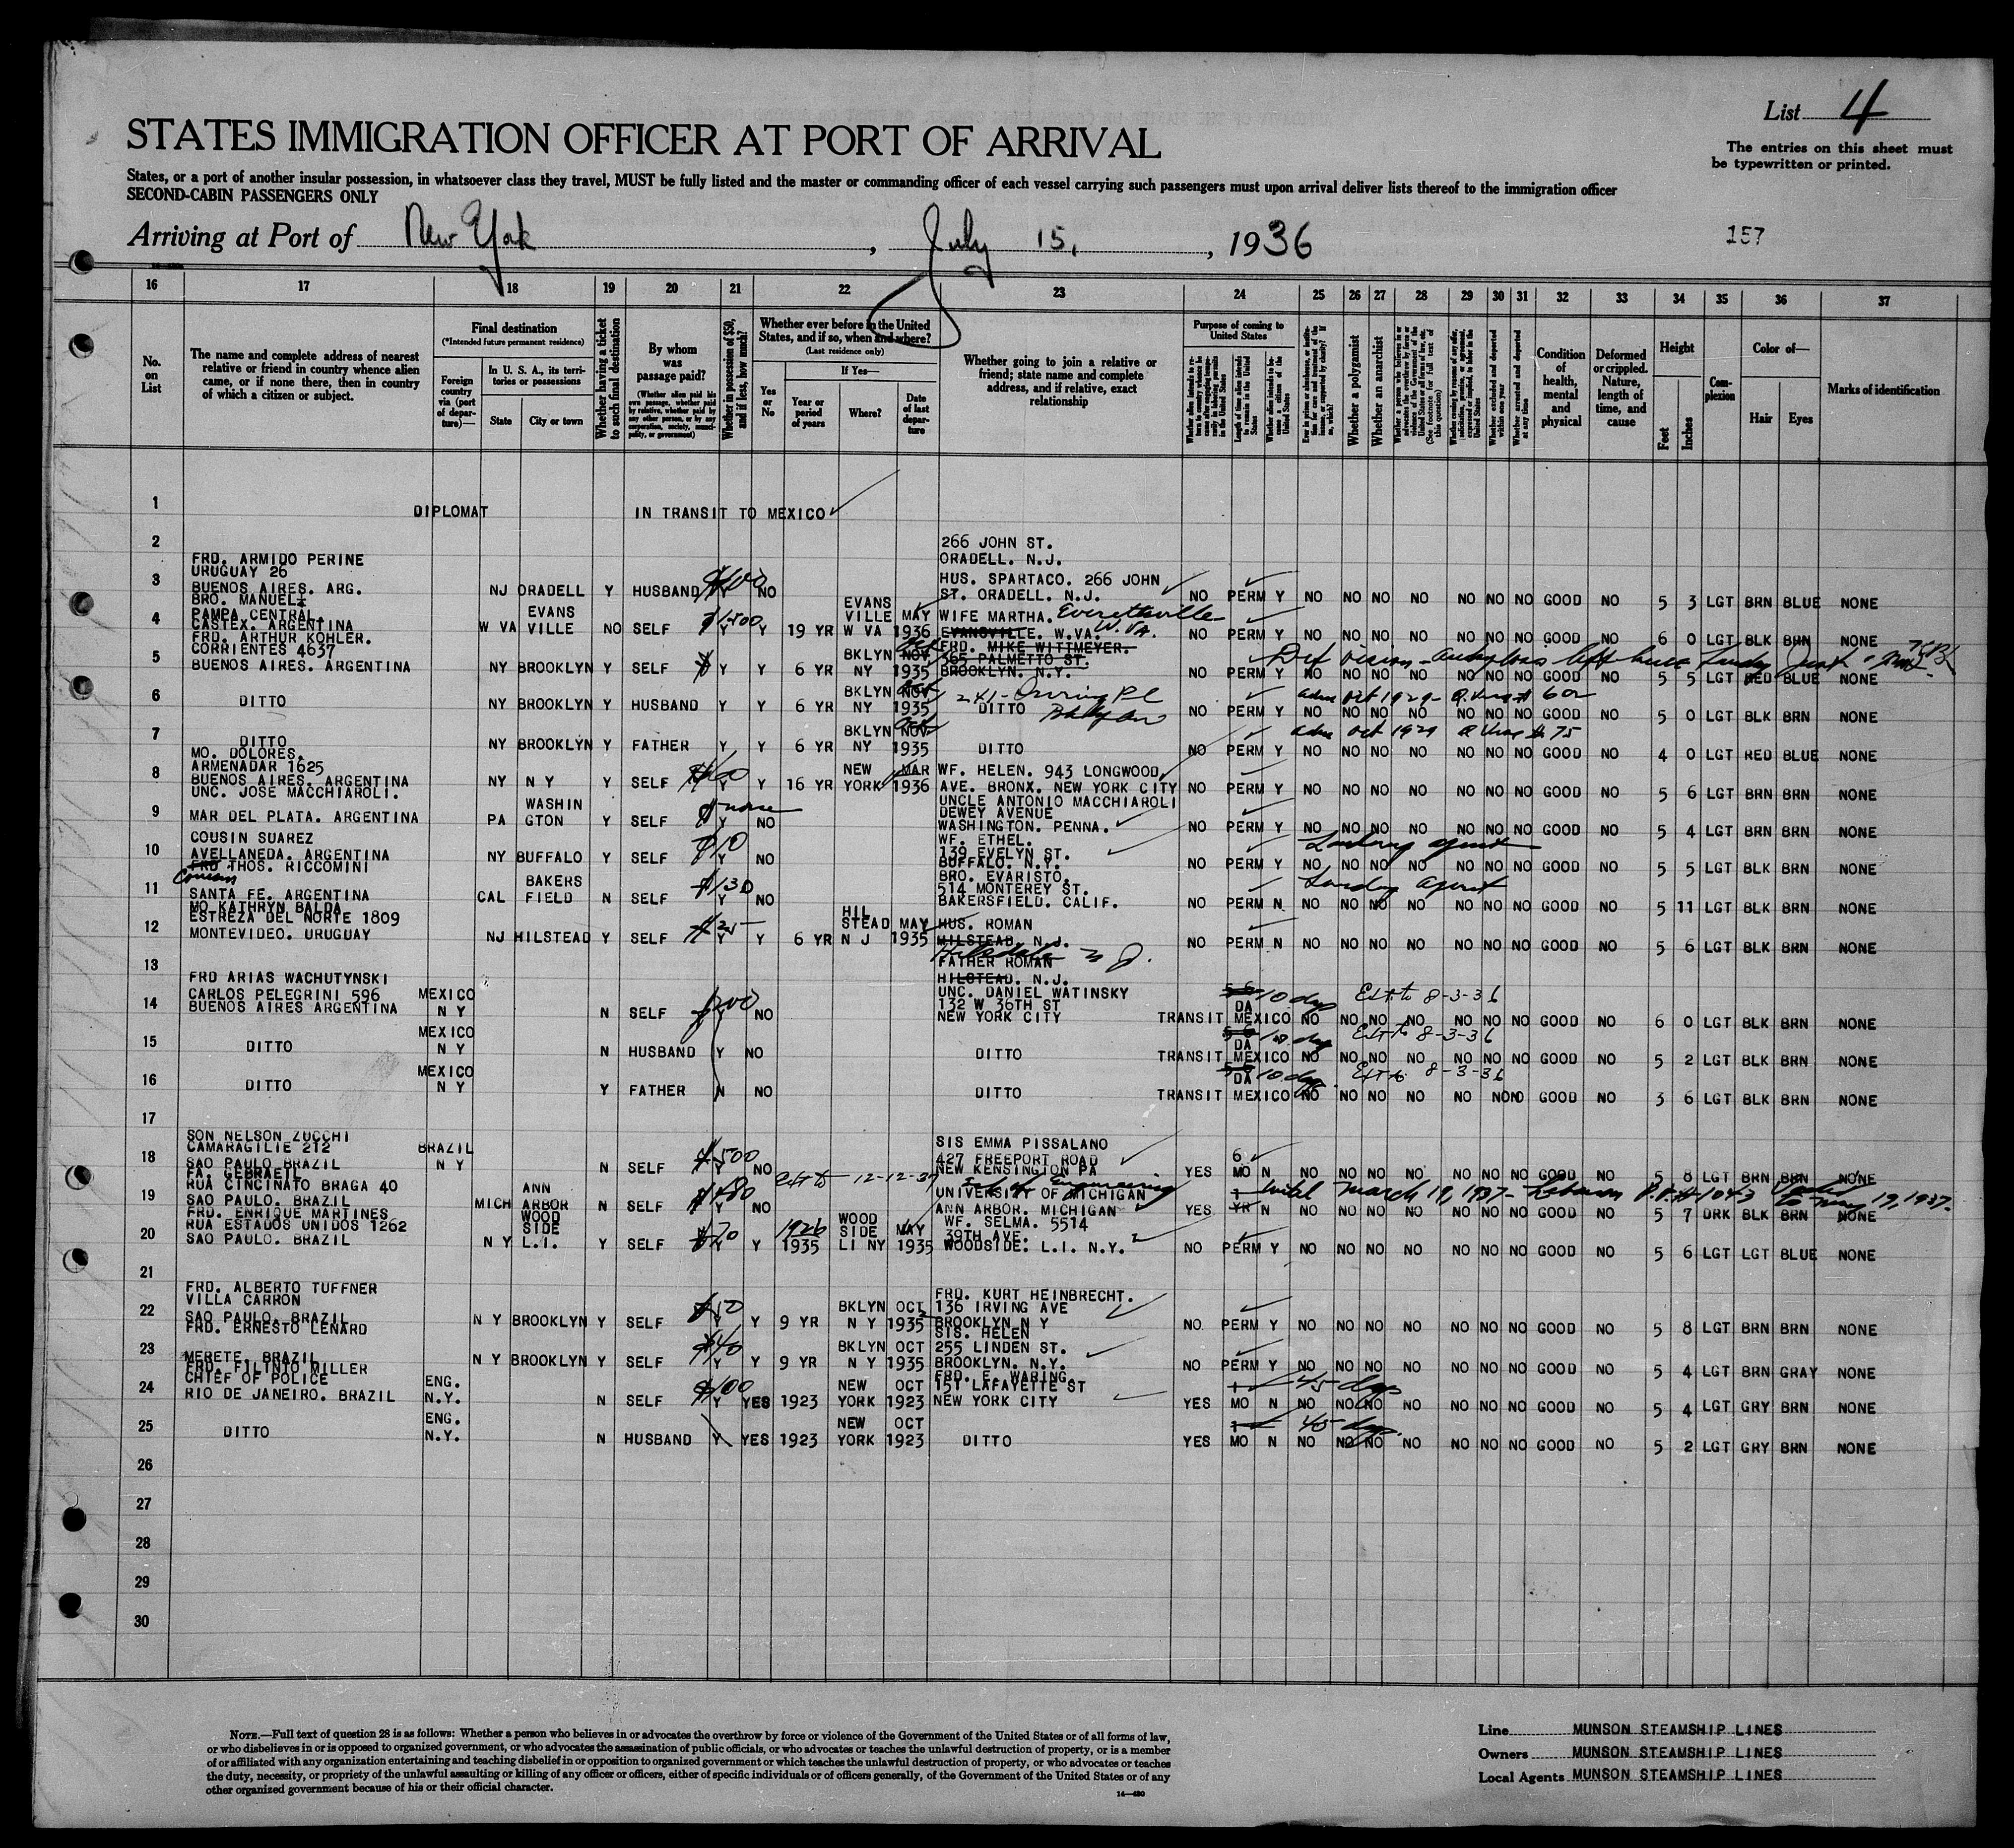 List 4
STATES IMMIGRATION OFFICER AT PORT OF ARRIVAL
The entries on this sheet must
be typewritten or printed.
States, or a port of another insular possession, in whatsoever class they travel, MUST be fully listed and the master or commanding officer of each vessel carrying such passengers must upon arrival deliver lists thereof to the immigration officer
SECOND-CABIN PASSENGERS ONLY
Arriving at Port of New York, July 15, 1936
157
16 17 18 19 20 21 22 23 24 25 26 27 28 29 30 31 32 33 34 35 36 37
No. on List
The name and complete address of nearest relative or friend in country whence alien came, or if none there, then in country of which a citizen or subject.
Final destination
(*Intended future permanent residence)
Foreign country via (port of departure)—
In U. S. A., its territories or possessions
State City or town
Whether having a ticket to such final destination
By whom was passage paid?
(Whether alien paid his own passage, whether paid by relative, whether paid by any other person, or by any corporation, society, municipality, or government)
Whether in possession of $50, and if less, how much?
Whether ever before in the United States, and if so, when and where?
(Last residence only)
Yes or No
If Yes—
Year or period of years
Where?
Date of last departure
Whether going to join a relative or friend; state name and complete address, and if relative, exact relationship
Purpose of coming to United States
Whether a polygamist
Whether an anarchist
Condition of health, mental and physical
Deformed or crippled. Nature, length of time, and cause
Height
Feet Inches
Complexion
Color of—
Hair Eyes
Marks of identification
1 DIPLOMAT IN TRANSIT TO MEXICO
2 266 JOHN ST.
ORADELL. N.J.
FRD. ARMIDO PERINE
URUGUAY 26
3 BUENOS AIRES. ARG. NJ ORADELL Y HUSBAND Y NO HUS. SPARTACO. 266 JOHN
ST. ORADELL. N.J. NO PERM Y NO NO NO NO NO NO NO GOOD NO 5 3 LGT BRN BLUE NONE
BRO. MANUEL
PAMPA CENTRAL
4 CASTEX. ARGENTINA W VA EVANS VILLE NO SELF $1500 Y Y 19 YR EVANS VILLE W VA MAY 1936 WIFE MARTHA. Everettsville
EVANSVILLE. W.VA. W.Va. NO PERM Y NO NO NO NO NO NO NO GOOD NO 6 0 LGT BLK BRN NONE
FRD. ARTHUR KOHLER.
CORRIENTES 4637
5 BUENOS AIRES. ARGENTINA NY BROOKLYN Y SELF Y Y 6 YR BKLYN NY NOV 1935 FRD. MIKE WITTMEYER.
565 PALMETTO ST.
BROOKLYN. N.Y. NO PERM Y NO NO NO NO NO NO NO GOOD NO 5 5 LGT RED BLUE NONE
6 DITTO NY BROOKLYN Y HUSBAND Y Y 6 YR BKLYN NY NOV 1935 241 - Irving Pl
DITTO NO PERM Y NO NO NO NO NO NO NO GOOD NO 5 0 LGT BLK BRN NONE
7 DITTO NY BROOKLYN Y FATHER Y Y 6 YR BKLYN NY NOV 1935 DITTO NO PERM Y NO NO NO NO NO NO NO GOOD NO 4 0 LGT RED BLUE NONE
MO. DOLORES.
ARMENADAR 1625
8 BUENOS AIRES. ARGENTINA NY N Y Y SELF Y Y 16 YR NEW YORK MAR 1936 WF. HELEN. 943 LONGWOOD
AVE. BRONX. NEW YORK CITY NO PERM Y NO NO NO NO NO NO NO GOOD NO 5 6 LGT BRN BRN NONE
UNC. JOSE MACCHIAROLI.
9 MAR DEL PLATA. ARGENTINA PA WASHIN GTON Y SELF none Y NO UNCLE ANTONIO MACCHIAROLI
DEWEY AVENUE
WASHINGTON. PENNA. NO PERM Y NO NO NO NO NO NO NO GOOD NO 5 4 LGT BRN BRN NONE
COUSIN SUAREZ
10 AVELLANEDA. ARGENTINA NY BUFFALO Y SELF $10 Y NO WF. ETHEL.
139 EVELYN ST.
BUFFALO. N.Y. NO PERM Y NO NO NO NO NO NO NO GOOD NO 5 5 LGT BLK BRN NONE
FRD THOS. RICCOMINI
Cousin
11 SANTA FE. ARGENTINA CAL BAKERS FIELD N SELF $130 Y NO BRO. EVARISTO.
514 MONTEREY ST.
BAKERSFIELD. CALIF. NO PERM N NO NO NO NO NO NO NO GOOD NO 5 11 LGT BLK BRN NONE
MO KATHRYN BALDA
ESTREZA DEL NORTE 1809
12 MONTEVIDEO. URUGUAY NJ HILSTEAD Y SELF $25 Y Y 6 YR HIL STEAD N J MAY 1935 HUS. ROMAN
HILSTEAD. N.J. NO PERM N NO NO NO NO NO NO NO GOOD NO 5 6 LGT BLK BRN NONE
13 FATHER ROMAN
HILSTEAD. N.J.
FRD ARIAS WACHUTYNSKI
CARLOS PELEGRINI 596
14 BUENOS AIRES ARGENTINA MEXICO N Y N SELF Y NO UNC. DANIEL WATINSKY
132 W 36TH ST
NEW YORK CITY DA 10 days Ext. to 8-3-36
TRANSIT MEXICO NO NO NO NO NO NO NO GOOD NO 6 0 LGT BLK BRN NONE
15 DITTO MEXICO N Y N HUSBAND Y NO DITTO DA 10 days Ext to 8-3-36
TRANSIT MEXICO NO NO NO NO NO NO NO GOOD NO 5 2 LGT BLK BRN NONE
16 DITTO MEXICO N Y Y FATHER N NO DITTO DA 10 days Ext to 8-3-36
TRANSIT MEXICO NO NO NO NO NO NO NO GOOD NO 3 6 LGT BLK BRN NONE
17
SON NELSON ZUCCHI
CAMARAGILIE 212
18 SAO PAULO BRAZIL BRAZIL N Y N SELF $500 Y NO SIS EMMA PISSALANO
427 FREEPORT ROAD
NEW KENSINGTON PA YES 6 MO N NO NO NO NO NO NO NO GOOD NO 5 8 LGT BRN BRN NONE
FA. GEBRAEIL
RUA CINCINATO BRAGA 40
19 SAO PAULO. BRAZIL MICH ANN ARBOR N SELF Y NO UNIVERSITY OF MICHIGAN
ANN ARBOR. MICHIGAN YES 1 YR N until March 19, 1937 - NO NO NO NO NO NO NO GOOD NO 5 7 DRK BLK BRN NONE
FRD. ENRIQUE MARTINES
RUA ESTADOS UNIDOS 1262
20 SAO PAULO. BRAZIL N Y WOOD SIDE L.I. Y SELF $70 Y Y 1926 1935 WOOD SIDE LI NY MAY 1935 WF. SELMA. 5514
39TH AVE.
WOODSIDE. L.I. N.Y. NO PERM Y NO NO NO NO NO NO NO GOOD NO 5 6 LGT LGT BLUE NONE
21
FRD. ALBERTO TUFFNER
VILLA CARRON
22 SAO PAULO. BRAZIL N Y BROOKLYN Y SELF Y Y 9 YR BKLYN N Y OCT 1935 FRD. KURT HEINBRECHT.
136 IRVING AVE
BROOKLYN N Y NO PERM Y NO NO NO NO NO NO NO GOOD NO 5 8 LGT BRN BRN NONE
FRD. ERNESTO LENARD
23 MERETE. BRAZIL N Y BROOKLYN Y SELF $40 Y Y 9 YR BKLYN N Y OCT 1935 SIS. HELEN
255 LINDEN ST.
BROOKLYN. N.Y. NO PERM Y NO NO NO NO NO NO NO GOOD NO 5 4 LGT BRN GRAY NONE
FRD. FILINTO MILLER
CHIEF OF POLICE
24 RIO DE JANEIRO. BRAZIL ENG. N.Y. N SELF $100 Y YES 1923 NEW YORK OCT 1923 FRD. E. WARING.
151 LAFAYETTE ST
NEW YORK CITY YES 1 MO 45 days N NO NO NO NO NO NO NO GOOD NO 5 4 LGT GRY BRN NONE
25 DITTO ENG. N.Y. N HUSBAND Y YES 1923 NEW YORK OCT 1923 DITTO YES 1 MO 45 days N NO NO NO NO NO NO NO GOOD NO 5 2 LGT GRY BRN NONE
26
27
28
29
30
NOTE.—Full text of question 28 is as follows: Whether a person who believes in or advocates the overthrow by force or violence of the Government of the United States or of all forms of law,
or who disbelieves in or is opposed to organized government, or who advocates the assassination of public officials, or who advocates or teaches the unlawful destruction of property, or is a member
of or affiliated with any organization entertaining and teaching disbelief in or opposition to organized government or which teaches the unlawful destruction of property, or who advocates or teaches
the duty, necessity, or propriety of the unlawful assaulting or killing of any officer or officers, either of specific individuals or of officers generally, of the Government of the United States or of any
other organized government because of his or their official character.
Line MUNSON STEAMSHIP LINES
Owners MUNSON STEAMSHIP LINES
Local Agents MUNSON STEAMSHIP LINES